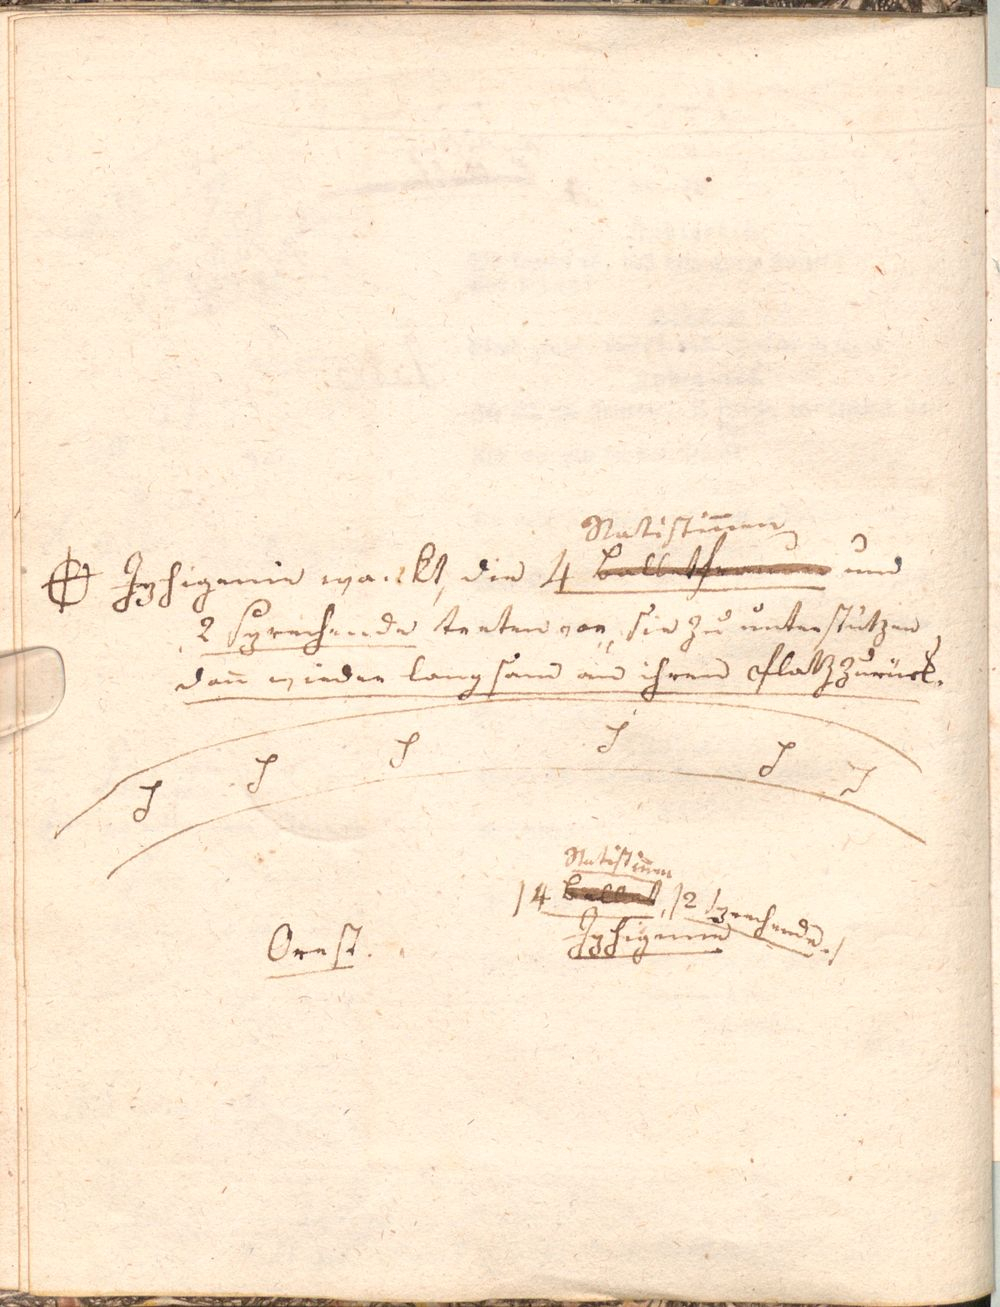 Statistinnen
Iphigenie wankt, die 4 und
2 Sprechende treten vor, sie zu unterstützen,
dann wieder langsam an ihren Platz zurück.
Statistinnen
/4 Ballet, /2 sprechende./
Iphigenie
Orest.